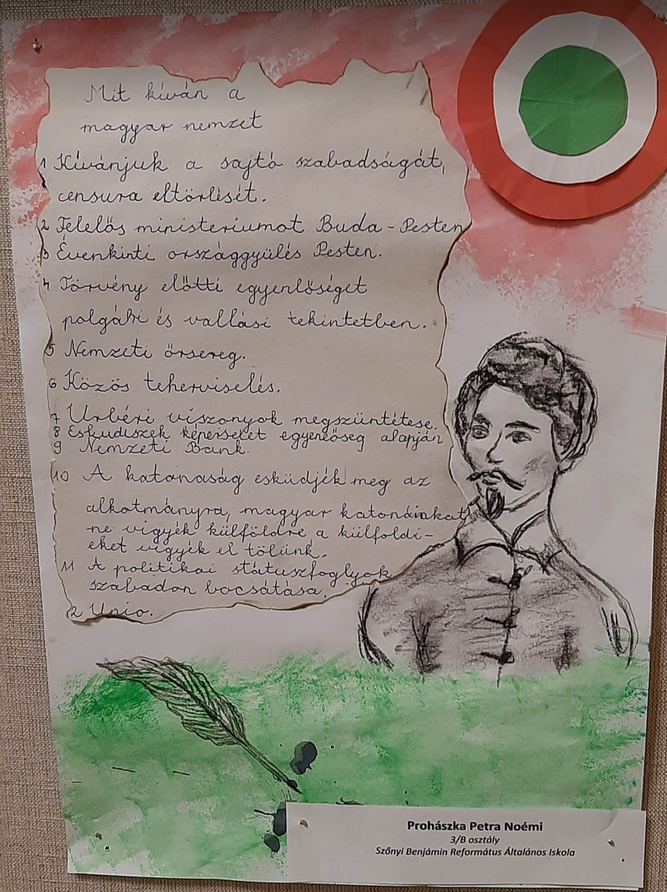 Mit kíván a
magyar nemzet
1 Kívánjuk a sajtó szabadságát,
censura eltörlését.
2 Felelős ministeriumot Buda-Pesten
3 Évenkinti országgyűlés Pesten.
4 Törvény előtti egyenlőséget
polgári és vallási tekintetben.
5 Nemzeti őrsereg.
6 Közös teherviselés.
7 Úrbéri viszonyok megszüntetése.
8 Esküdtszék képviselet egyenlőség alapján
9 Nemzeti Bank.
10 A katonaság esküdjék meg az
alkotmányra, magyar katonáinkat
ne vigyék külföldre a külföldi-
eket vigyék el tőlünk.
11 A politikai státuszfoglyok
szabadon bocsátása.
12 Unio.
Prohászka Petra Noémi
3/B osztály
Szőnyi Benjámin Református Általános Iskola